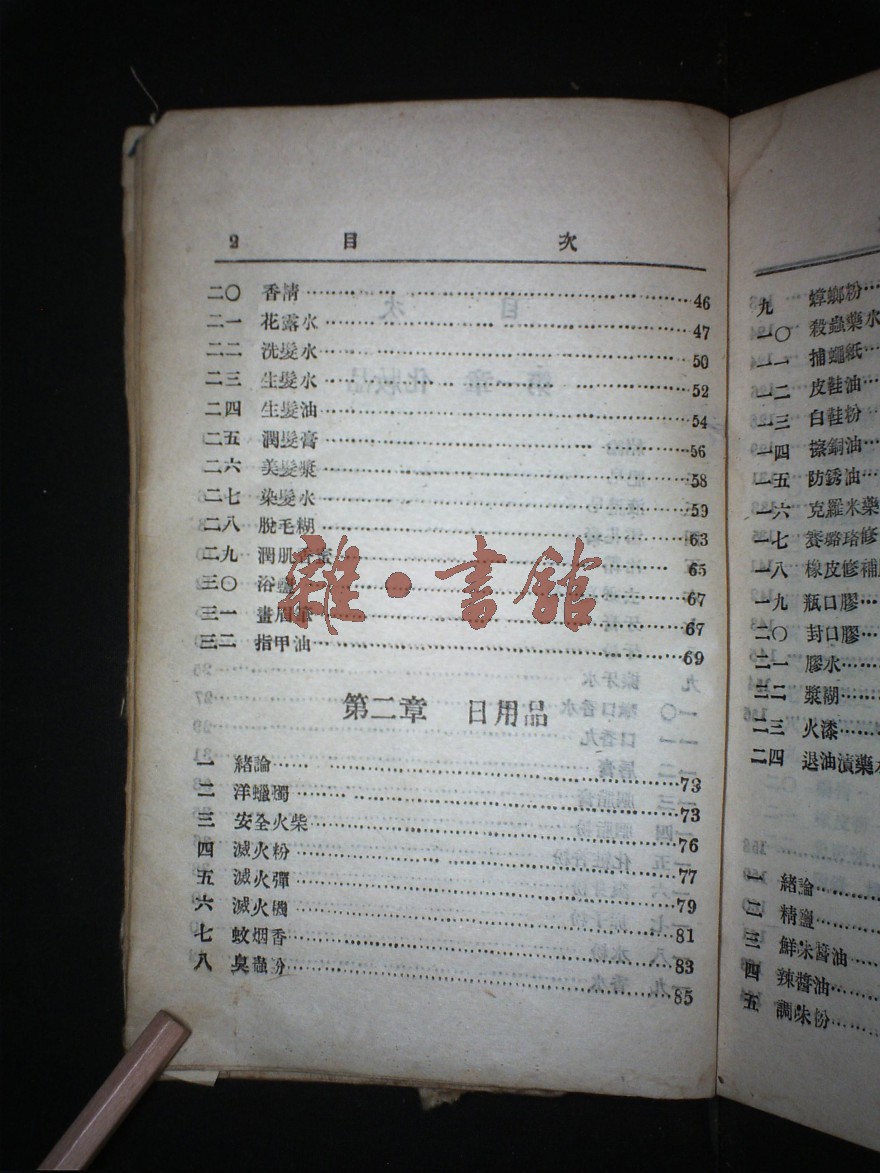 2 目 次
二〇 香精 46
二一 花露水 47
二二 洗髮水 50
二三 生髮水 52
二四 生髮油 54
二五 潤髮膏 56
二六 美髮漿 58
二七 染髮水 59
二八 脫毛糊 63
二九 潤肌香蜜 65
三〇 浴鹽 67
三一 畫眉筆 67
三二 指甲油 69
第二章 日用品
一 緒論 73
二 洋蠟燭 73
三 安全火柴 76
四 滅火粉 77
五 滅火彈 79
六 滅火機 81
七 蚊烟香 83
八 臭蟲粉 85
雜·書館
九 蟑螂粉
一〇 殺蟲藥水
一一 捕蠅紙
一二 皮鞋油
一三 白鞋粉
一四 擦銅油
一五 防銹油
一六 克羅米藥
一七 賽璐珞修
一八 橡皮修補膠
一九 瓶口膠
二〇 封口膠
二一 膠水
二二 漿糊
二三 火漆
二四 退油漬藥水
一 緒論
二 精鹽
三 鮮味醬油
四 辣醬油
五 調味粉